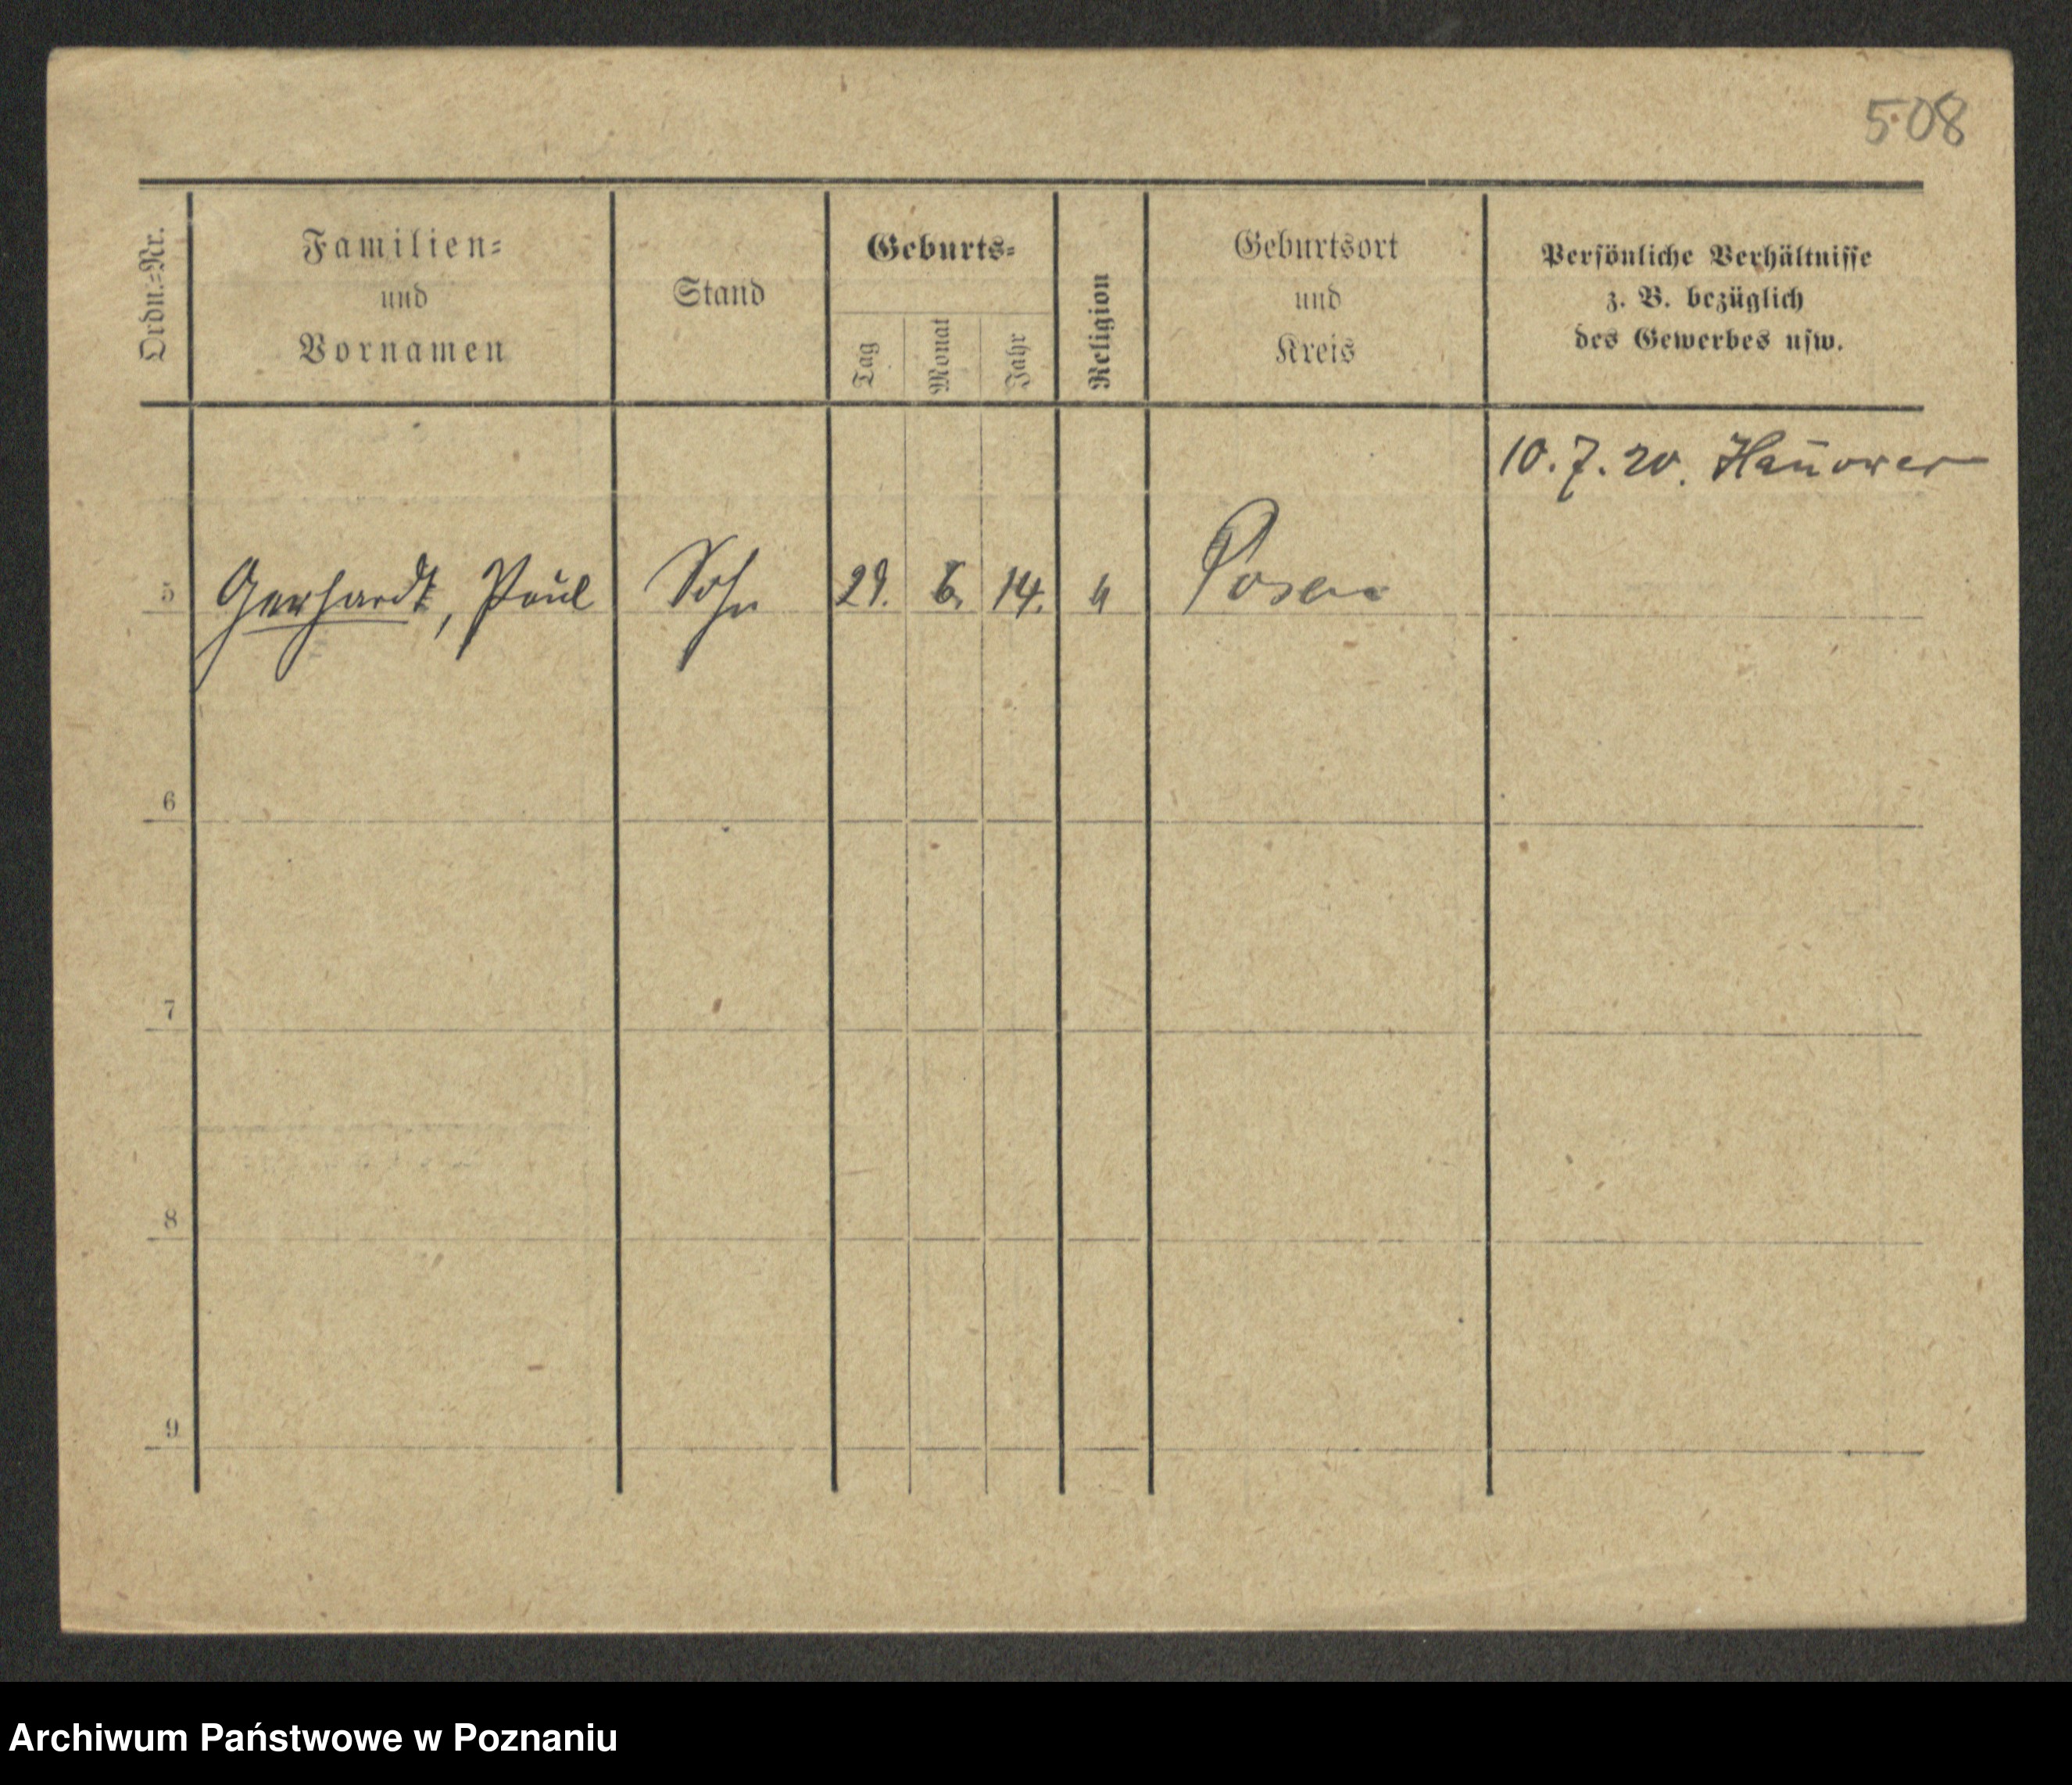 508
Ordn.=Nr.
Familien=
und
Vornamen
Stand
Geburts=
Tag
Monat
Jahr
Religion
Geburtsort
und
Kreis
Persönliche Verhältnisse
z. B. bezüglich
des Gewerbes usw.
10. 7. 20. Han̄over
5 Gerhardt, Paul Sohn 29. 6. 14. " Posen
6
7
8
9
Archiwum Państwowe w Poznaniu